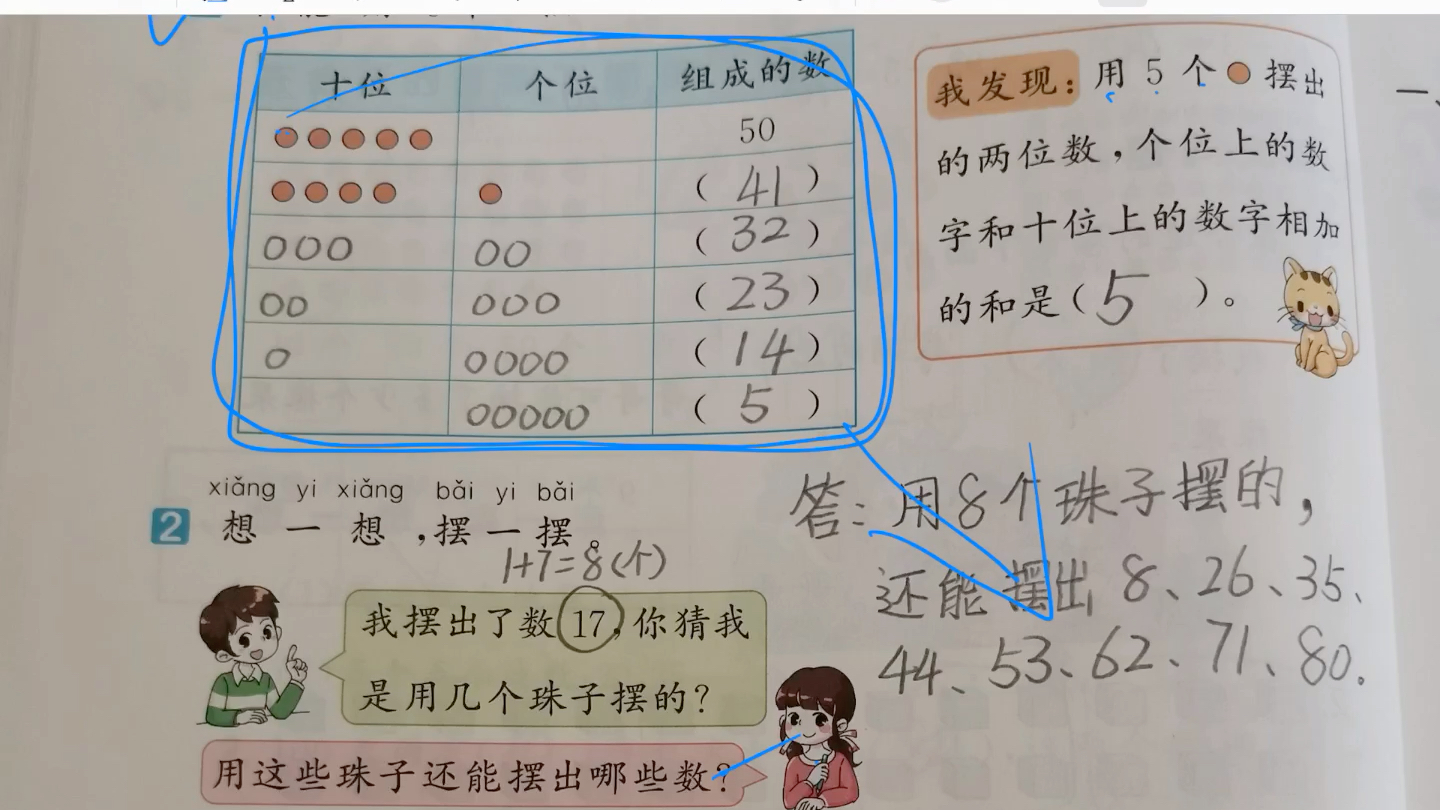 十位 个位 组成的数
50
( 41 )
( 32 )
( 23 )
( 14 )
( 5 )
我发现：用 5 个 摆出
的两位数，个位上的数
字和十位上的数字相加
的和是( 5 )。
一、
xiǎng yi xiǎng bǎi yi bǎi
2 想一想，摆一摆。
1+7=8(个)
我摆出了数 17，你猜我
是用几个珠子摆的？
用这些珠子还能摆出哪些数？
答：用8个珠子摆的，
还能摆出 8、26、35、
44、53、62、71、80.